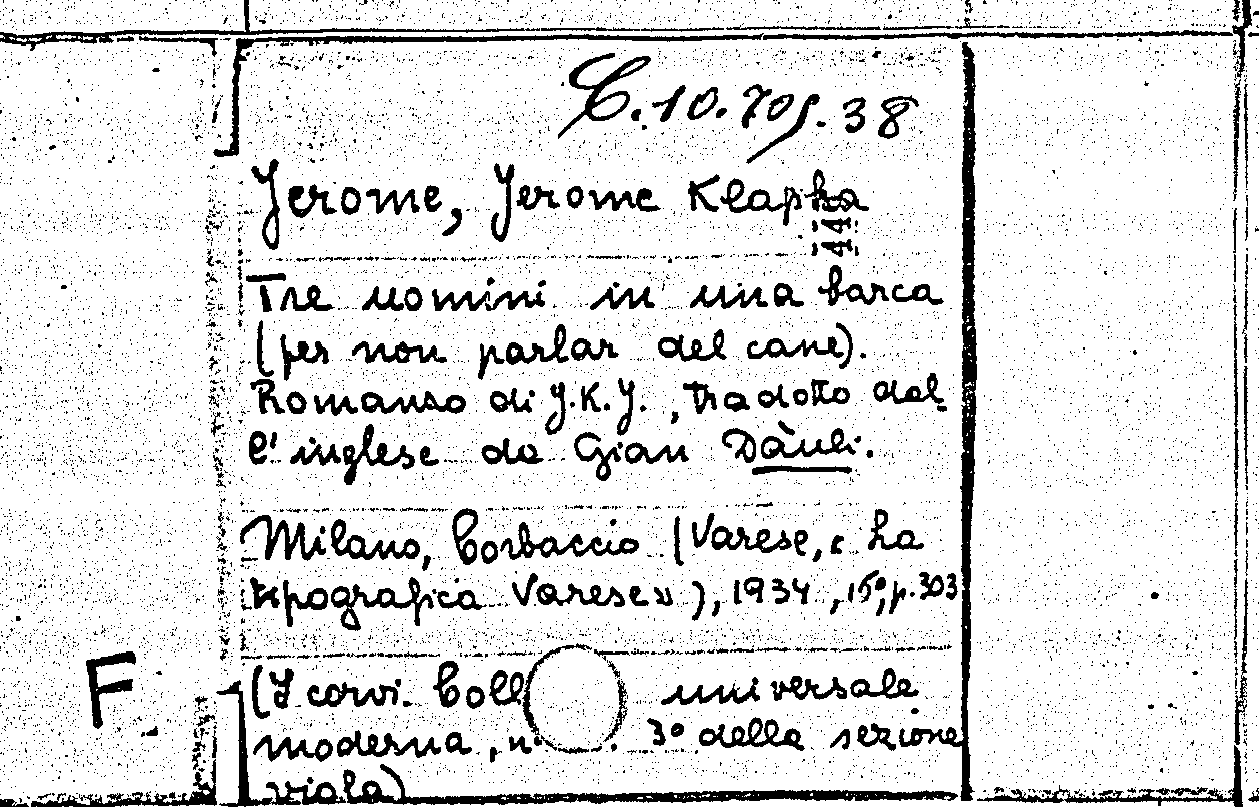 C.10.705.38
Jerome, Jerome Klapka
Tre uomini in una barca
(per non parlar del cane).
Romanzo di J.K.J., tradotto dal
l'inglese da Gian Dàuli.
Milano, Corbaccio (Varese, « La
tipografica Varese»), 1934, 15°, p. 303
(I corvi. Coll universale
moderna, n° . 3° della sezione
viola)
F